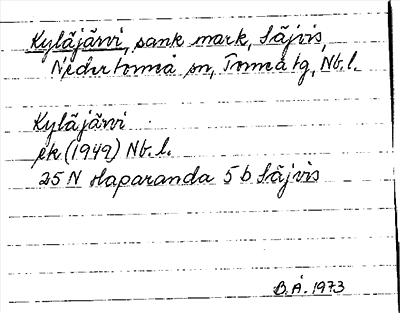 Kyläjärvi, sank mark, Säjvis,
Nedertorneå sn, Torneå tg, Nb. l.
Kyläjärvi
ek (1949) Nb. l.
25 N Haparanda 5 b Säjvis
B.Å. 1973